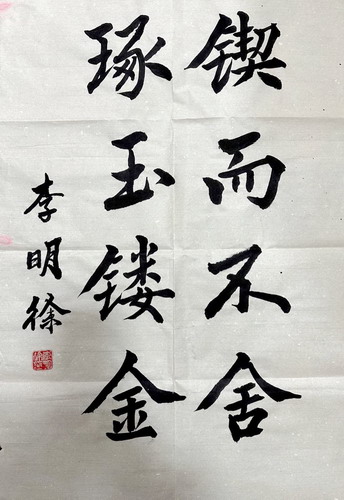 锲而不舍
琢玉镂金
李明徐